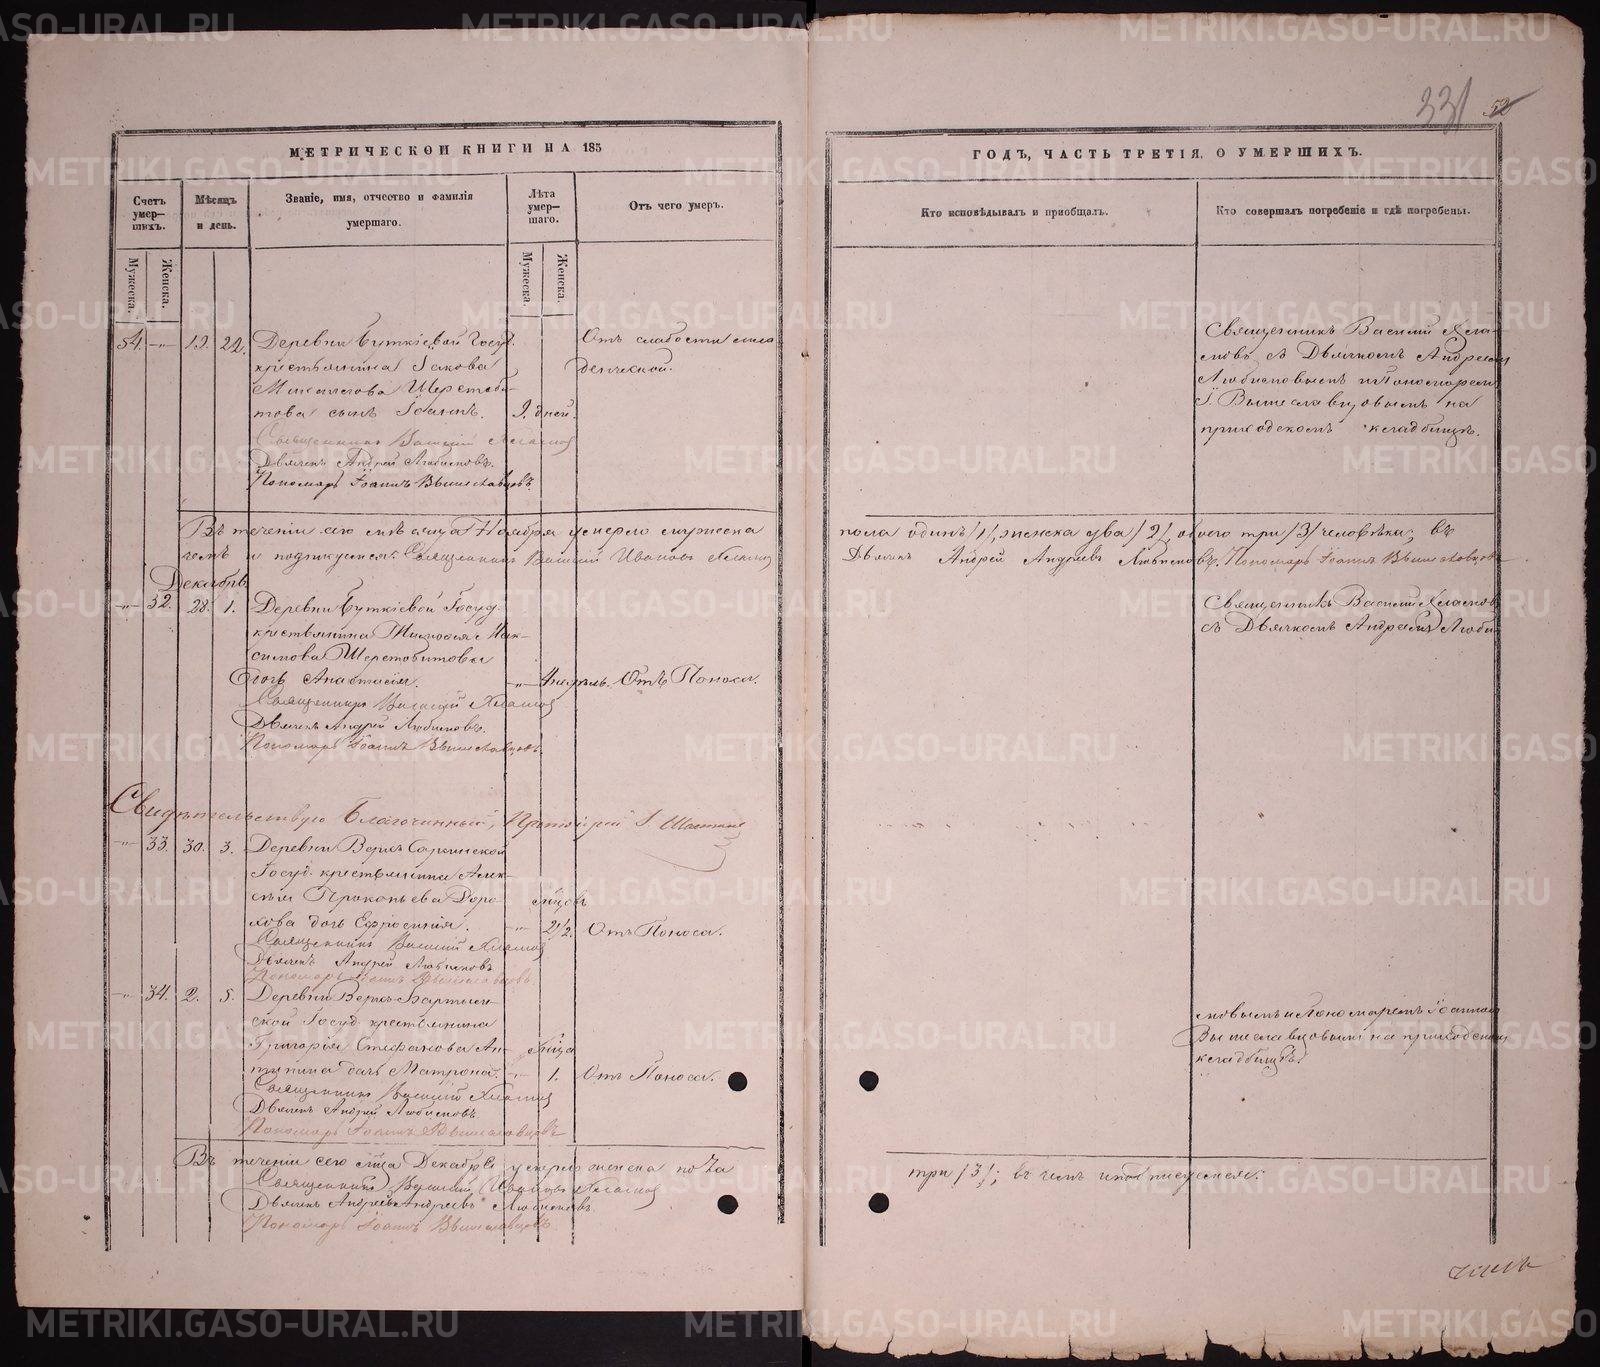 МЕТРИЧЕСКОЙ КНИГИ НА 185
Счетъ умер–шихъ.
Мѣсяцъ и день.
Званіе, имя, отчество и фамилія умершаго.
Лѣта умер–шаго.
Отъ чего умеръ.
Мужеска.
Женска.
Мужеска.
Женска.
54. —"— 19. 22. Деревни Буткіевой Госуд. Отъ слабости мла
крестьянина Іакова денческой.
Шерстоби-
това сынъ Іоаннъ. 9. дней.
Священникъ Василій
Дьячекъ Андрей Любимовъ.
Пономарь Іоаннъ Вышеславцовъ.
Въ теченіи сего мѣсяца Ноября умерло мужеска
чемъ и подпишемся: Священникъ Василій Ивановъ
Декабрь
—"— 32. 28. 1. Деревни Буткіевой Госуд.
крестьянина Тимофея Мак-
симова Шерстобитова
дочь Анастасія. —"— 4 недѣль. Отъ Поноса.
Священникъ Василій
Дьячекъ Андрей Любимовъ.
Пономарь Іоаннъ Вышеславцовъ.
Свидѣтельствую Благочинный, Протоіерей І.
—"— 33. 30. 3. Деревни Верхъ
Госуд. крестьянина Алек-
сѣя Прокопьева Доро- мѣсяцовъ
хова дочь Ефросинія. —"— 2 1/2. Отъ Поноса.
Священникъ Василій
Дьячекъ Андрей Любимовъ
Пономарь Іоаннъ Вышеславцовъ.
—"— 34. 2. 5. Деревни Верхъ-Бартым-
ской Госуд. крестьянина
Григорія Стефанова Ан- мѣсяца
типина дочь Матрона. —"— 1. Отъ Поноса.
Священникъ Василій
Дьячекъ Андрей Любимовъ.
Пономарь Іоаннъ Вышеславцовъ
Въ теченіи сего мѣсяца Декабря умерло женска пола
Священникъ Василій Ивановъ
Дьячекъ Андрей Андреевъ Любимовъ.
Пономарь Іоаннъ Вышеславцовъ.
331 52
ГОДЪ, ЧАСТЬ ТРЕТІЯ, О УМЕРШИХЪ.
Кто исповѣдывалъ и пріобщалъ.
Кто совершалъ погребеніе и гдѣ погребены.
Священникъ Василій
съ Дьячкомъ Андреемъ
Любимовымъ и Пономаремъ
І. Вышеславцовымъ на
приходскомъ кладбищѣ.
пола одинъ /1/, женска два /2/, обоего три /3/ человѣка; въ
Дьячекъ Андрей Андреевъ Любимовъ. Пономарь Іоаннъ Вышеславцовъ.
Священникъ Василій
съ Дьячкомъ Андреемъ Люби-
мовымъ и Пономаремъ Іоанномъ
Вышеславцовымъ на приходскомъ
кладбищѣ.
три /3/; въ чемъ и подписуемся:
METRIKI.GASO-URAL.RU